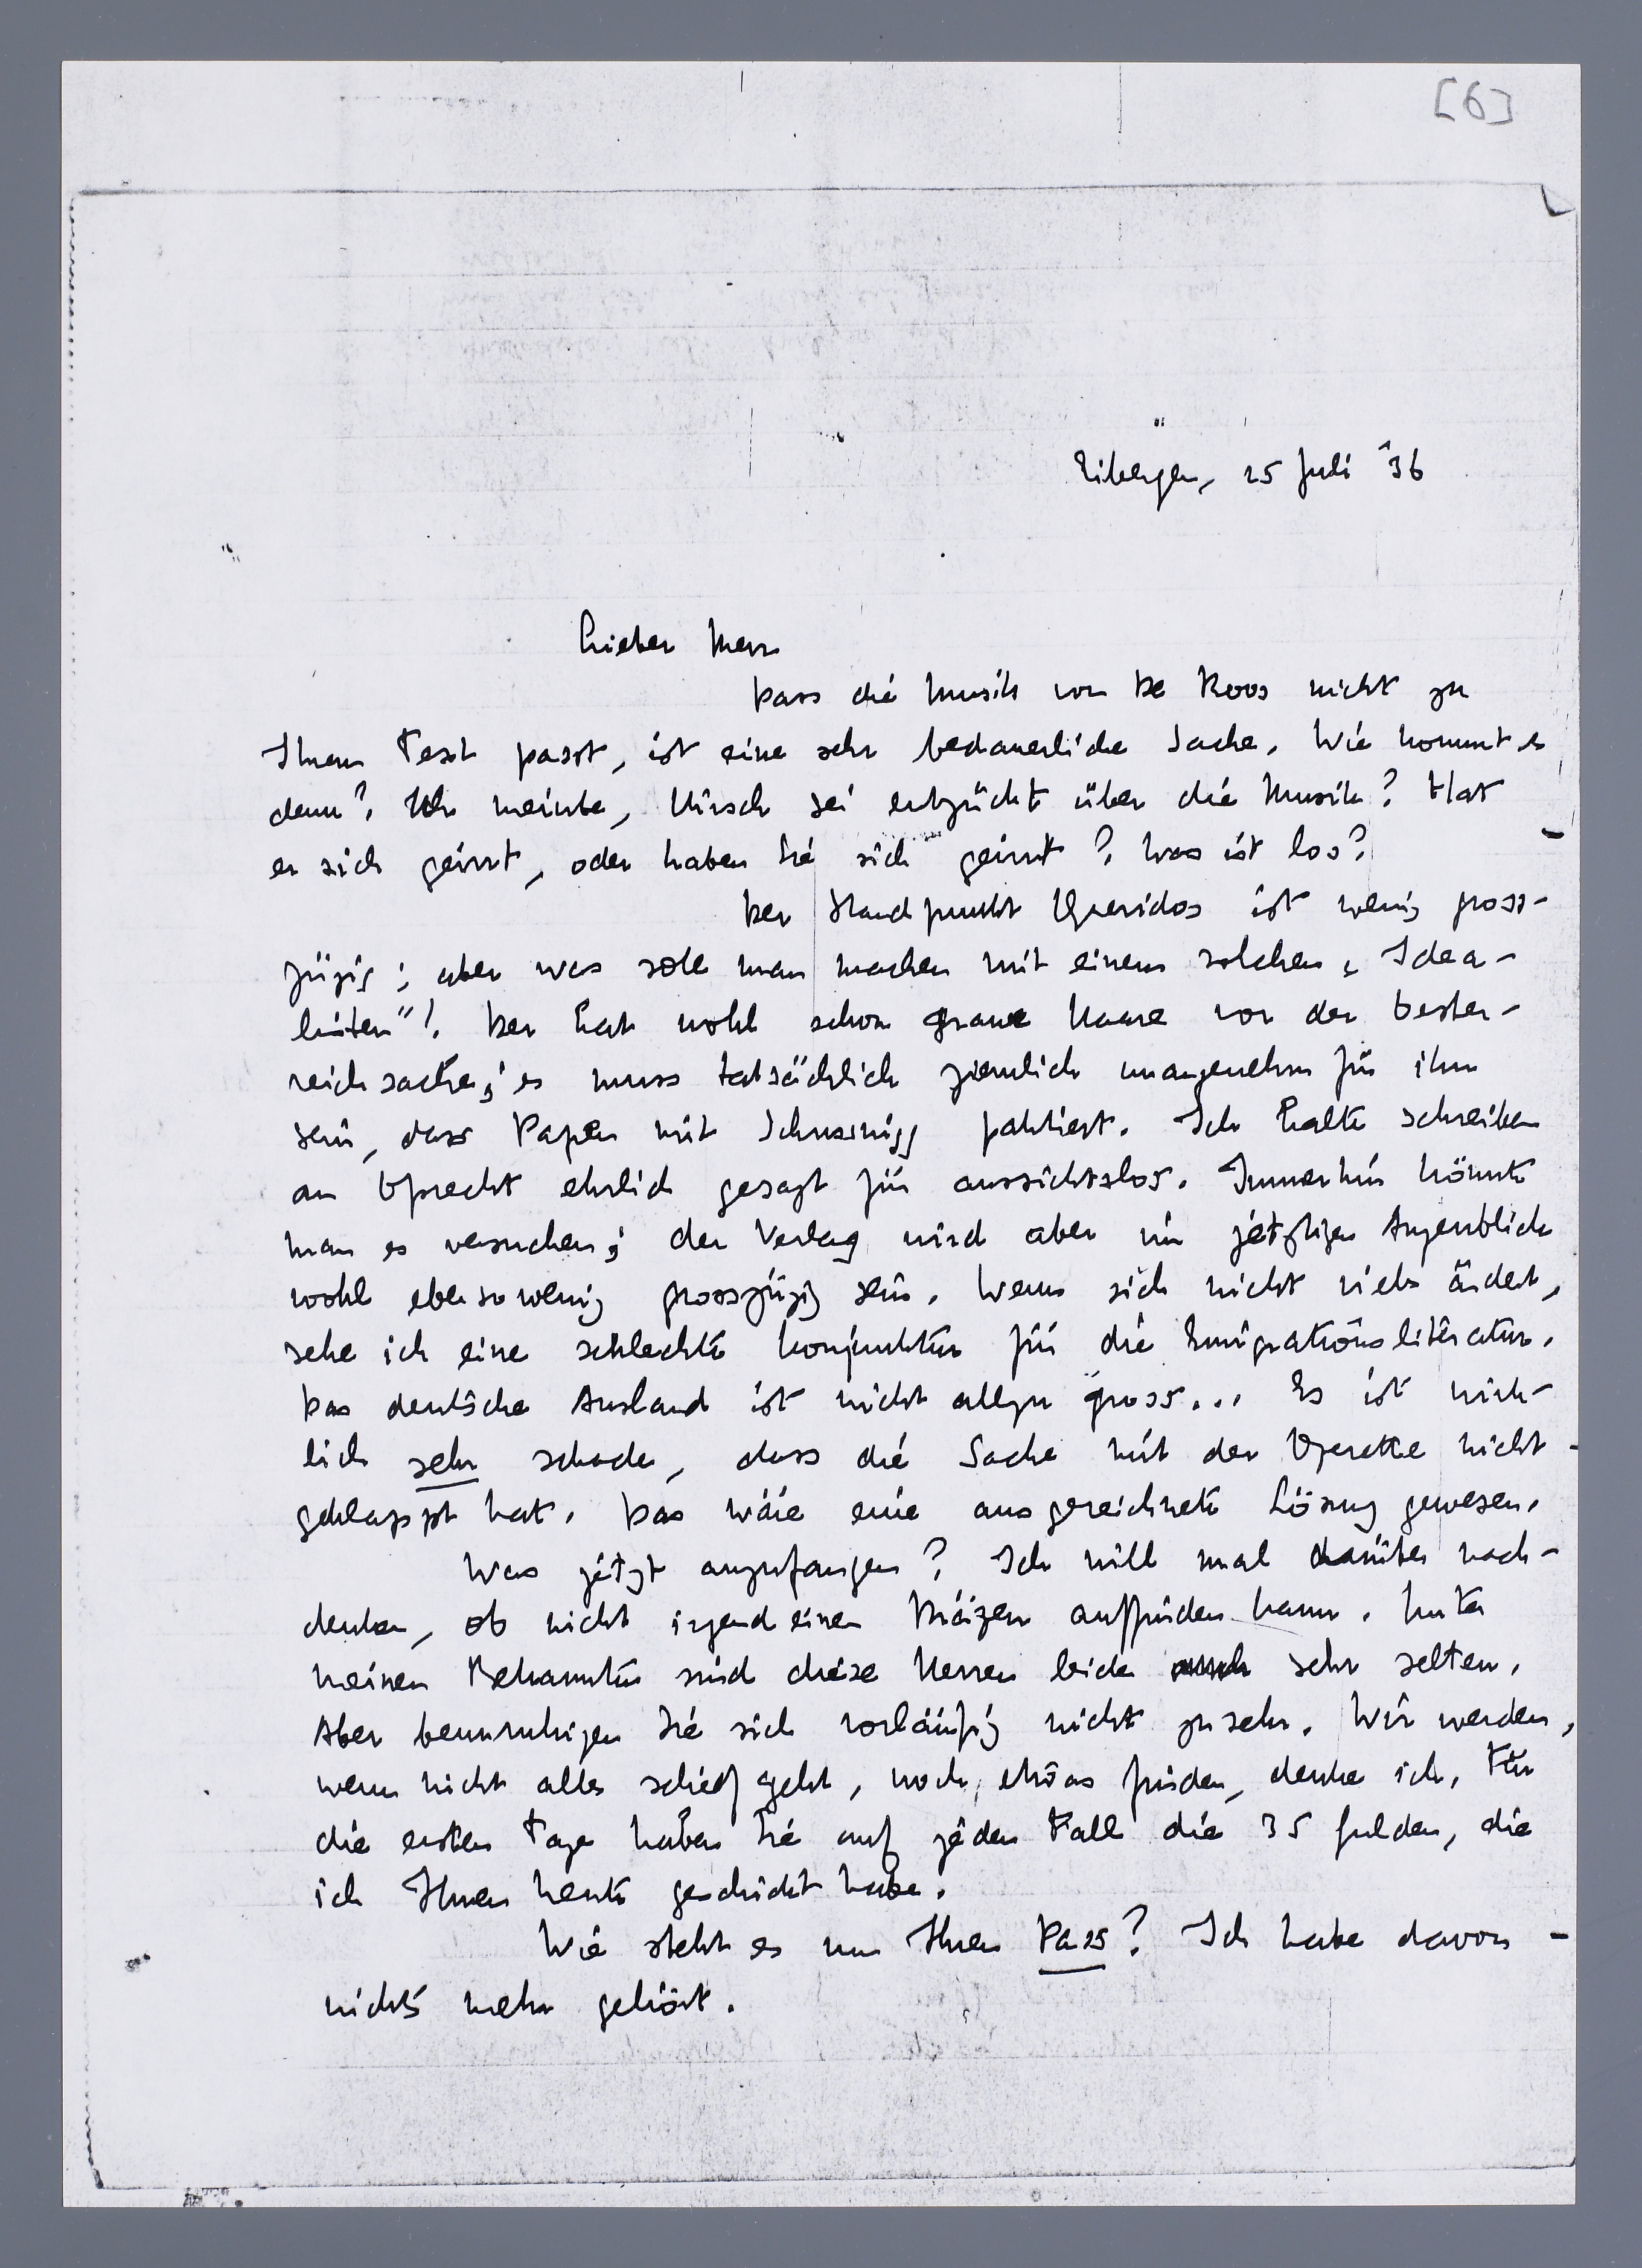 [6]
Eibergen, 25 Juli '36
Lieber Herr
Dass die Musik von De Roos nicht zu
Ihrem Text passt, ist eine sehr bedauerliche Sache. Wie kommt es
denn? Ich meinte, Hirsch sei entzückt über die Musik? Hat
er sich geirrt, oder haben Sie sich geirrt? Was ist los?
Der Standpunkt Queridos ist wenig gross-
zügig; aber was soll man machen mit einem solchen „Idea-
listen"! Der hat wohl schon graue Haare von der Oester-
reichsache; es muss tatsächlich ziemlich unangenehm für ihn
sein, dass Papen mit Schusnigg paktiert. Ich halte schreiben
an Oprecht ehrlich gesagt für aussichtslos. Immerhin könnte
man es versuchen; der Verlag wird aber im jetztigen Augenblick
wohl ebensowenig grosszügig sein. Wenn sich nicht viels ändert,
sehe ich eine schlechte Konjunktur für die Emigrationsliteratur.
Das deutsche Ausland ist nicht allzu gross... Es ist wirk-
lich sehr schade, dass die Sache mit der Operette nicht
geklappt hat. Das wäre eine ausgezeichnete Lösung gewesen.
Was jetzt anzufangen? Ich will mal darüber nach-
denken, ob nicht irgend einen Mäzen auffinden kann. Unter
meinen Bekannten sind diese Herren leider sehr selten.
Aber beunruhigen Sie sich vorläufig nicht zu sehr. Wir werden,
wenn nicht alles schief geht, noch etwas finden, denke ich. Für
die ersten Tage haben Sie auf jeden Fall die 35 Gulden, die
ich Ihnen heute geschickt habe.
Wie steht es um Ihren Pass? Ich habe davon
nichts mehr gehört.